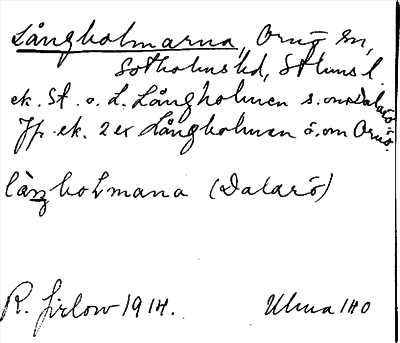 Långholmarna, Ornö sn,
Sotholms hd, Sthms l.
ek. St. o. L. Långholmen s. om Dalarö
Jfr ek. 2 ex Långholmen ö. om Ornö.
làŋholmana (Dalarö)
R. Jirlow 1914. Ulma 140